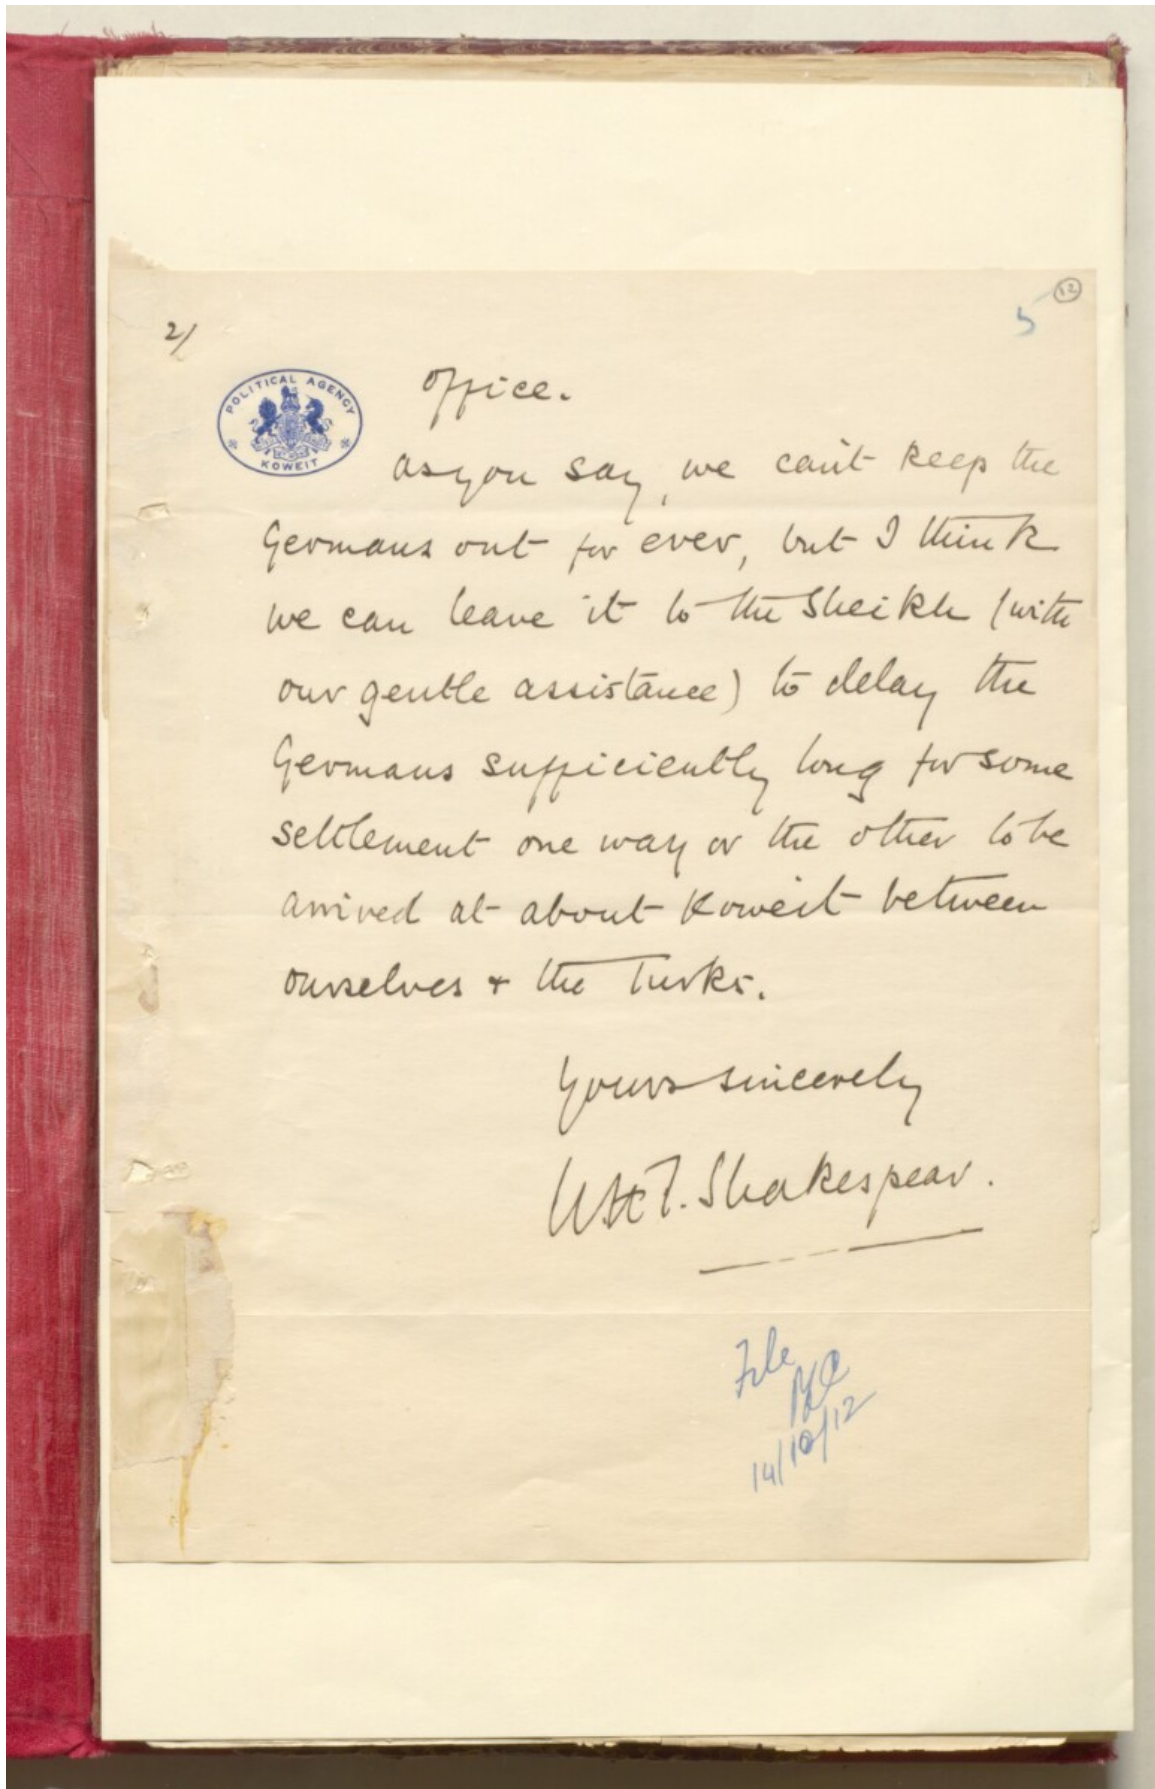 12
5
2/
POLITICAL AGENCY
KOWEIT
office.
As you say, we can't keep the
Germans out for ever, but I think
we can leave it to the Sheikh (with
our gentle assistance) to delay the
Germans sufficiently long for some
settlement one way or the other to be
arrived at about Koweit between
ourselves & the Turks.
Yours sincerely
W H I. Shakespear.
File
PZC
14/10/12